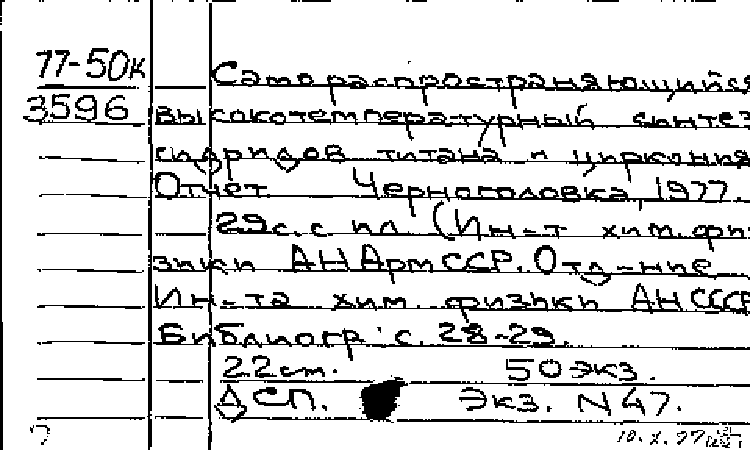 77-50к
3596
Самораспространяющийся
высокотемпературный синтез
гидридов титана и циркония
Отчет. Черноголовка, 1977.
29с. с ил. (Ин-т хим. фи-
зики АН АрмССР. Отд-ние
Ин-та хим. физики АН СССР
Библиогр: с. 28-29.
22см. 50 экз.
ДСП. Экз. N 47.
10.X.77